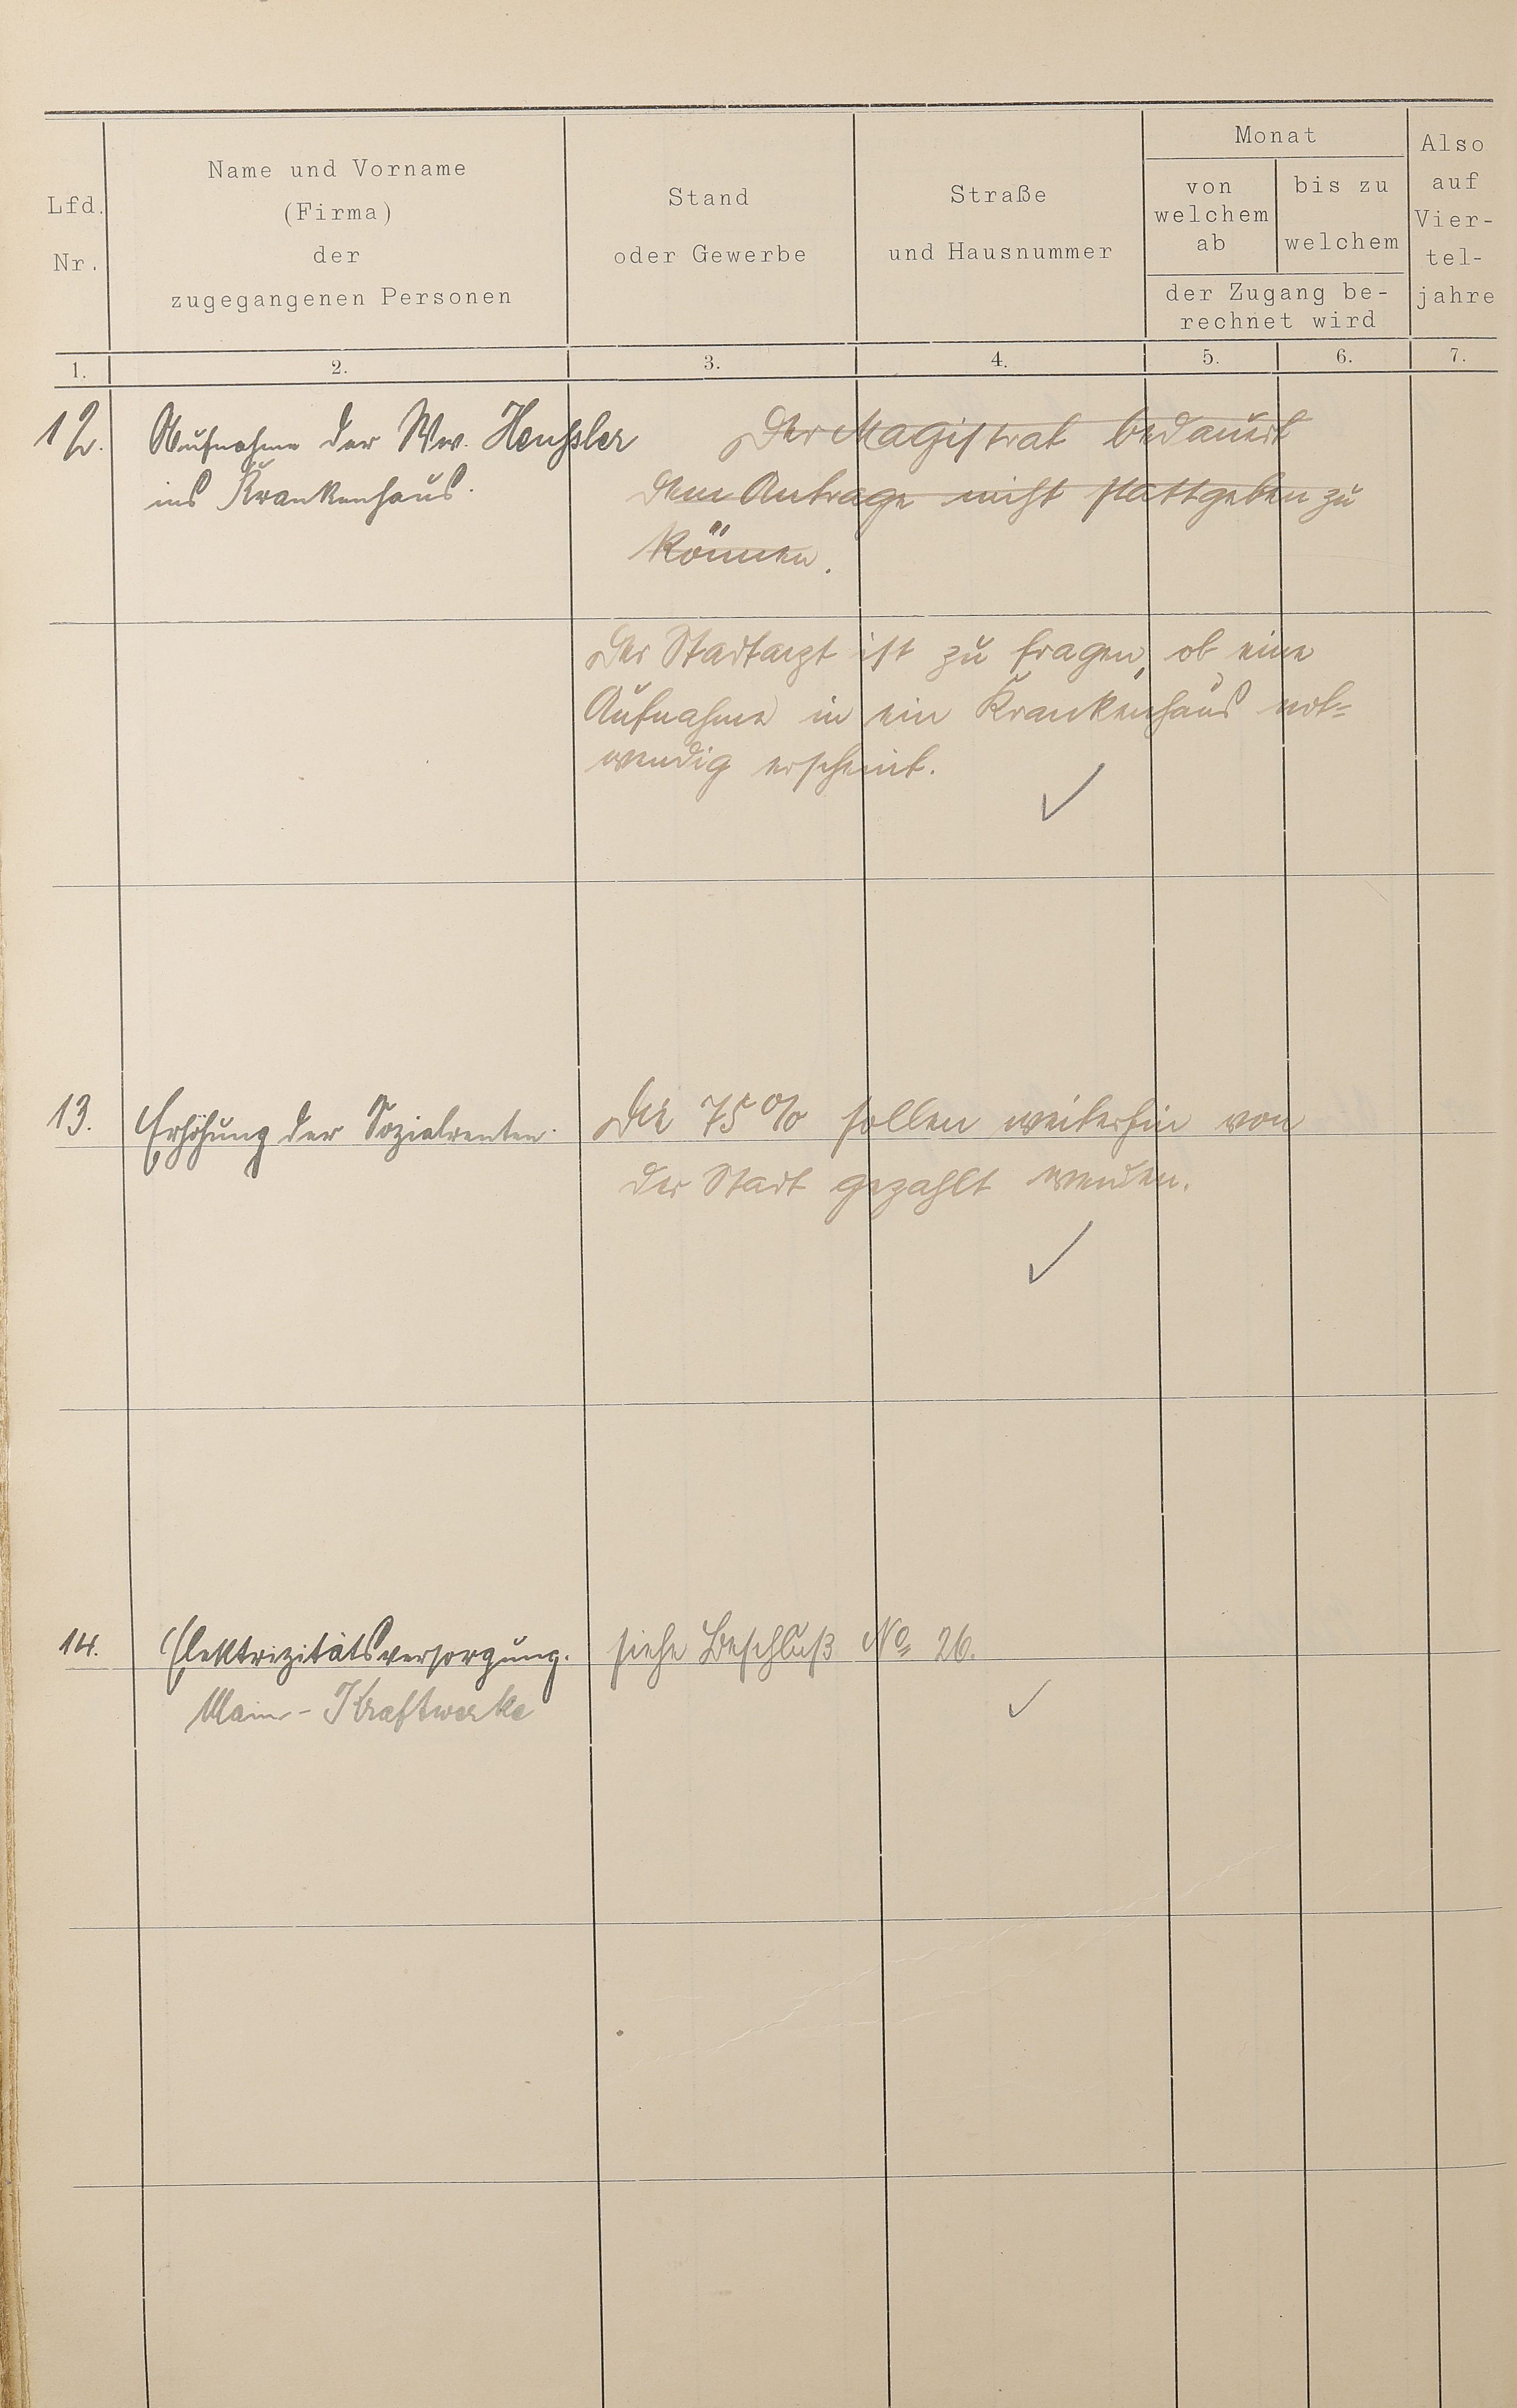 Lfd. Nr.
Name und Vorname
(Firma)
der
zugegangenen Personen
Stand
oder Gewerbe
Straße
und Hausnummer
Monat
von
welchem
ab
bis zu
welchem
der Zugang be-
rechnet wird
Also
auf
Vier-
tel-
jahre
1. 2. 3. 4. 5. 6. 7.
12. Aufnahme der Ww. Henssler
ins Krankenhaus.
Der Magistrat bedauert
dem Antrage nicht stattgeben zu
können.
Der Stadtarzt ist zu fragen, ob eine
Aufnahme in ein Krankenhaus not=
wendig erscheint.
✓
13. Erhöhung der Sozialrenten.
Die 75% sollen weiterhin von
der Stadt gezahlt werden.
✓
14. Elektrizitätsversorgung.
Main-Kraftwerke
siehe Beschluß No 26.
✓